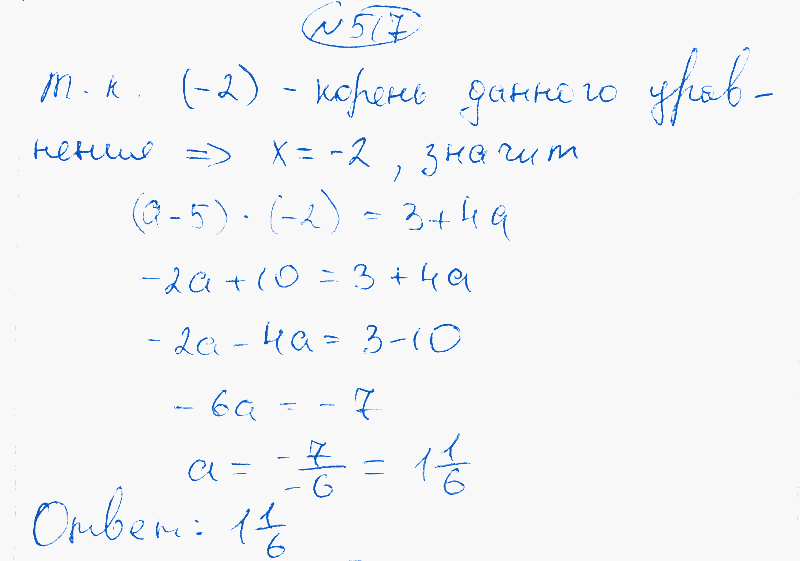 №517
т.к. (-2) - корень данного урав-
нения => x = -2, значит
(a-5)·(-2) = 3+4a
-2a+10 = 3+4a
-2a-4a = 3-10
-6a = -7
a = -7/-6 = 1 1/6
Ответ: 1 1/6